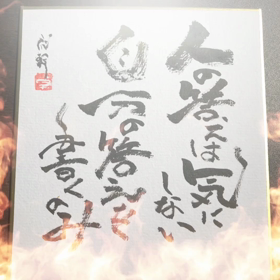 人の答えは気に
しない
自分の答えを
書くのみ